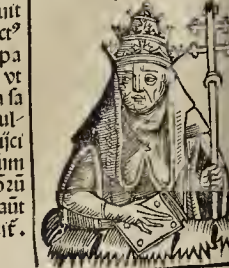 uit
ct⁹
pa
vt
a sa
ul-
ijci
um
orū
aūt